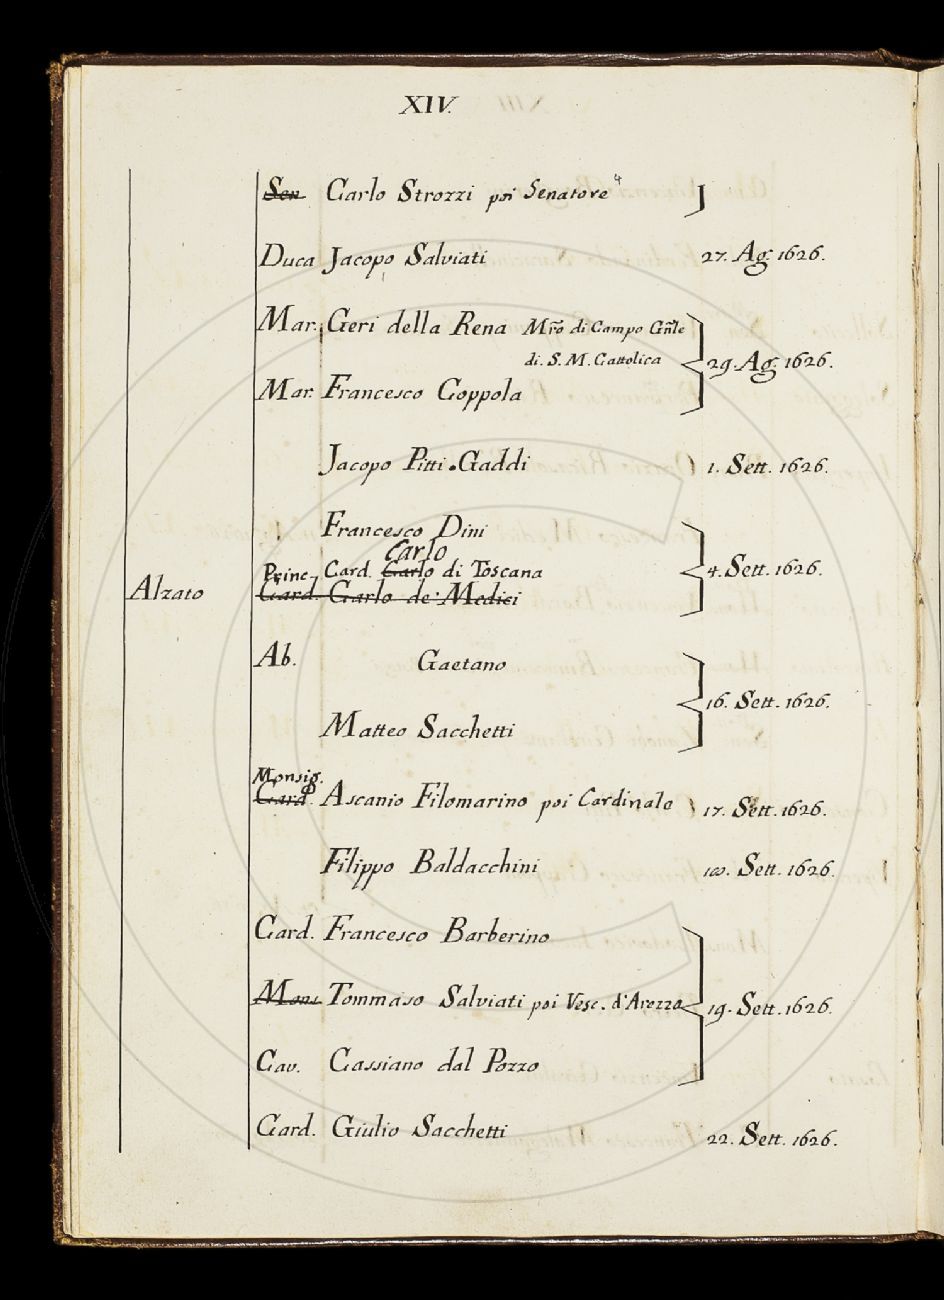 XIV.
Sen. Carlo Strozzi poi Senatore
Duca Jacopo Salviati 27. Ag. 1626.
Mar. Geri della Rena Mro di Campo Gnle
di. S. M. Cattolica 29. Ag. 1626.
Mar. Francesco Coppola
Jacopo Pitti. Gaddi 1. Sett. 1626.
Francesco Dini
Carlo
Princ. Card. Carlo di Toscana 4. Sett. 1626.
Alzato Card. Carlo de' Medici
Ab. Gaetano
16. Sett. 1626.
Matteo Sacchetti
Monsig.
Card. Ascanio Filomarino poi Cardinale 17. Sett. 1626.
Filippo Baldacchini Sett. 1626.
Card. Francesco Barberino
Mons. Tommaso Salviati poi Vesc. d'Arezzo 19. Sett. 1626.
Cav. Cassiano dal Pozzo
Card. Giulio Sacchetti 22. Sett. 1626.